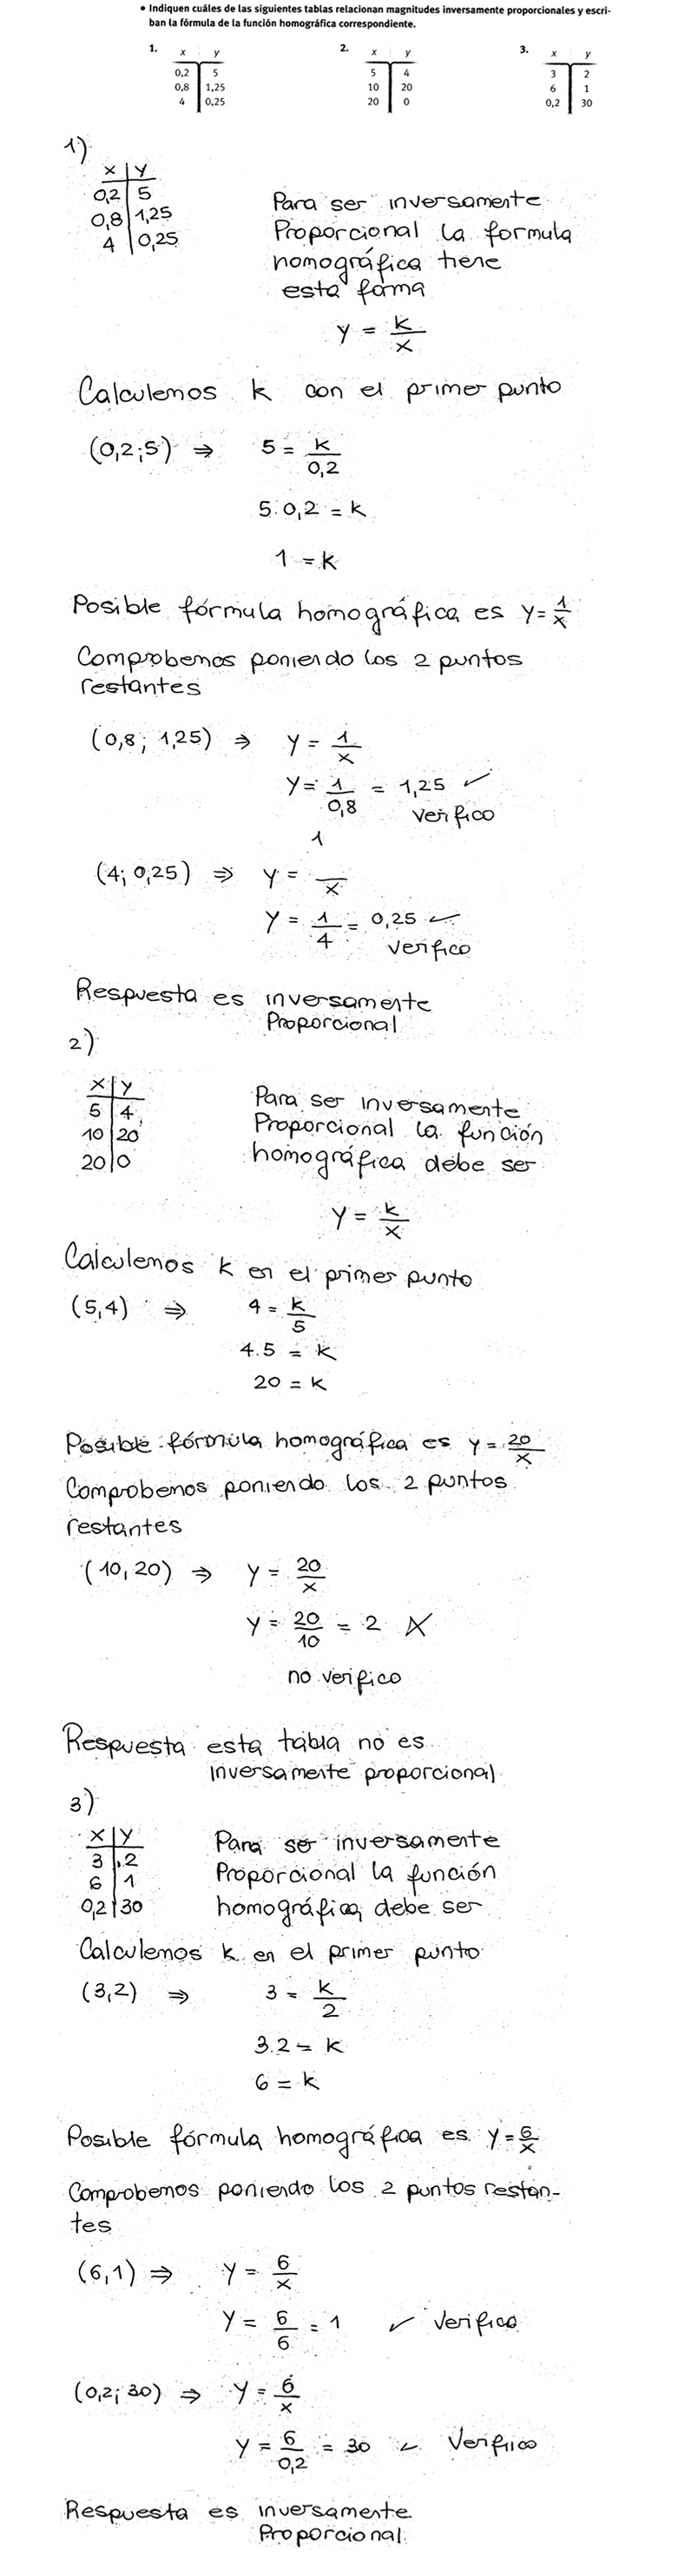 • Indiquen cuáles de las siguientes tablas relacionan magnitudes inversamente proporcionales y escri-
ban la fórmula de la función homográfica correspondiente.
1. x y
0,2 5
0,8 1,25
4 0,25
2. x y
5 4
10 20
20 0
3. x y
3 2
6 1
0,2 30
1)
x y
0,2 5
0,8 1,25
4 0,25
Para ser inversamente
Proporcional la formula
homográfica tiene
esta forma
y = k/x
Calculemos k con el primer punto
(0,2;5) ⇒ 5 = k/0,2
5.0,2 = k
1 = k
Posible fórmula homográfica es y = 1/x
Comprobemos poniendo los 2 puntos
restantes
(0,8; 1,25) ⇒ y = 1/x
y = 1/0,8 = 1,25 ✓
Verifico
(4; 0,25) ⇒ y = 1/x
y = 1/4 = 0,25 ✓
Verifico
Respuesta es inversamente
Proporcional
2)
x y
5 4
10 20
20 0
Para ser inversamente
Proporcional la función
homográfica debe ser
y = k/x
Calculemos k en el primer punto
(5,4) ⇒ 4 = k/5
4.5 = k
20 = k
Posible fórmula homográfica es y = 20/x
Comprobemos poniendo los 2 puntos
restantes
(10,20) ⇒ y = 20/x
y = 20/10 = 2 X
no verifico
Respuesta esta tabla no es
inversamente proporcional
3)
x y
3 2
6 1
0,2 30
Para ser inversamente
Proporcional la función
homográfica debe ser
Calculemos k en el primer punto
(3,2) ⇒ 3 = k/2
3.2 = k
6 = k
Posible fórmula homográfica es y = 6/x
Comprobemos poniendo los 2 puntos restan-
tes
(6,1) ⇒ y = 6/x
y = 6/6 = 1 ✓ Verifico
(0,2; 30) ⇒ y = 6/x
y = 6/0,2 = 30 ✓ Verifico
Respuesta es inversamente
Proporcional